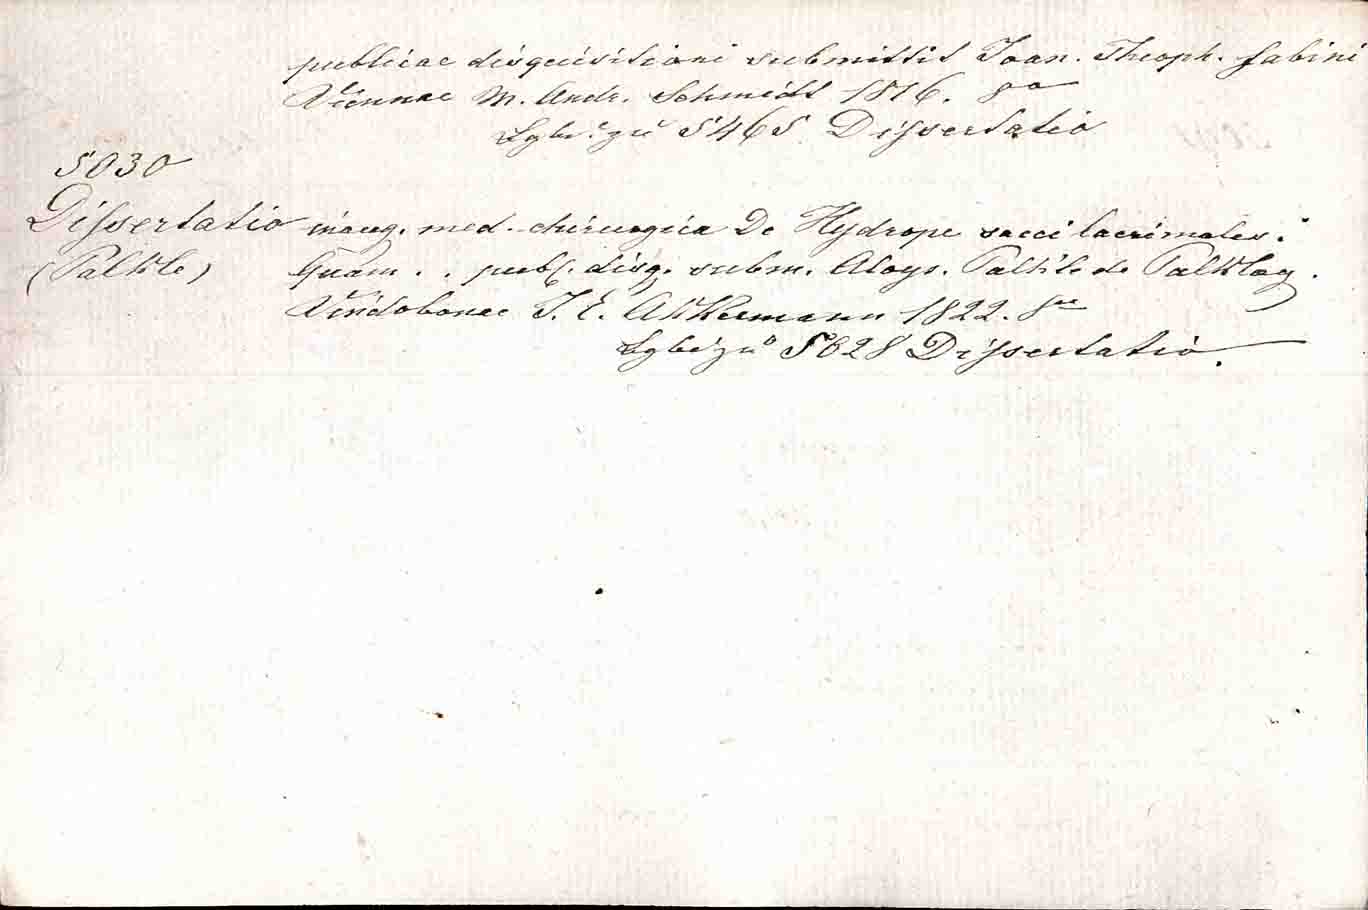 publicae disquisitioni submittit Joan. Theoph. Fabini
Viennae M. Andr. Schmidt 1816. 8o
5465 Dissertatio
5030
Dissertatio inaug. med.-chirurgica De Hydrope sacci lacrimales.
(Paltile) Quam . . publ. disq. subm. Aloys. Paltile de
Vindobonae J. E. Akkermann 1822. 8
5628 Dissertatio.